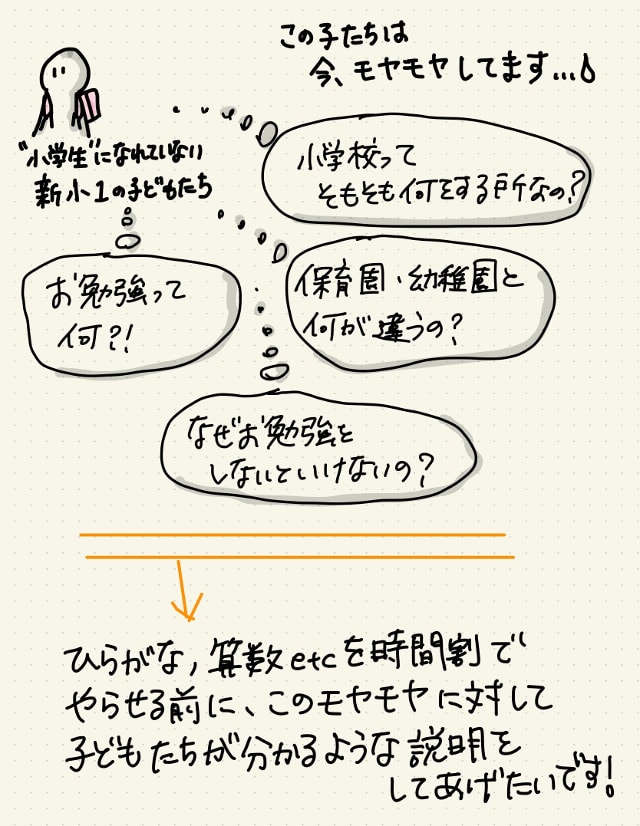 この子たちは
今、モヤモヤしてます...
"小学生"になれていない
新小1の子どもたち
小学校って
そもそも何をする所なの?
お勉強って
何?!
保育園・幼稚園と
何が違うの?
なぜお勉強を
しないといけないの?
ひらがな,算数etcを時間割で
やらせる前に、このモヤモヤに対して
子どもたちが分かるような説明を
してあげたいです!